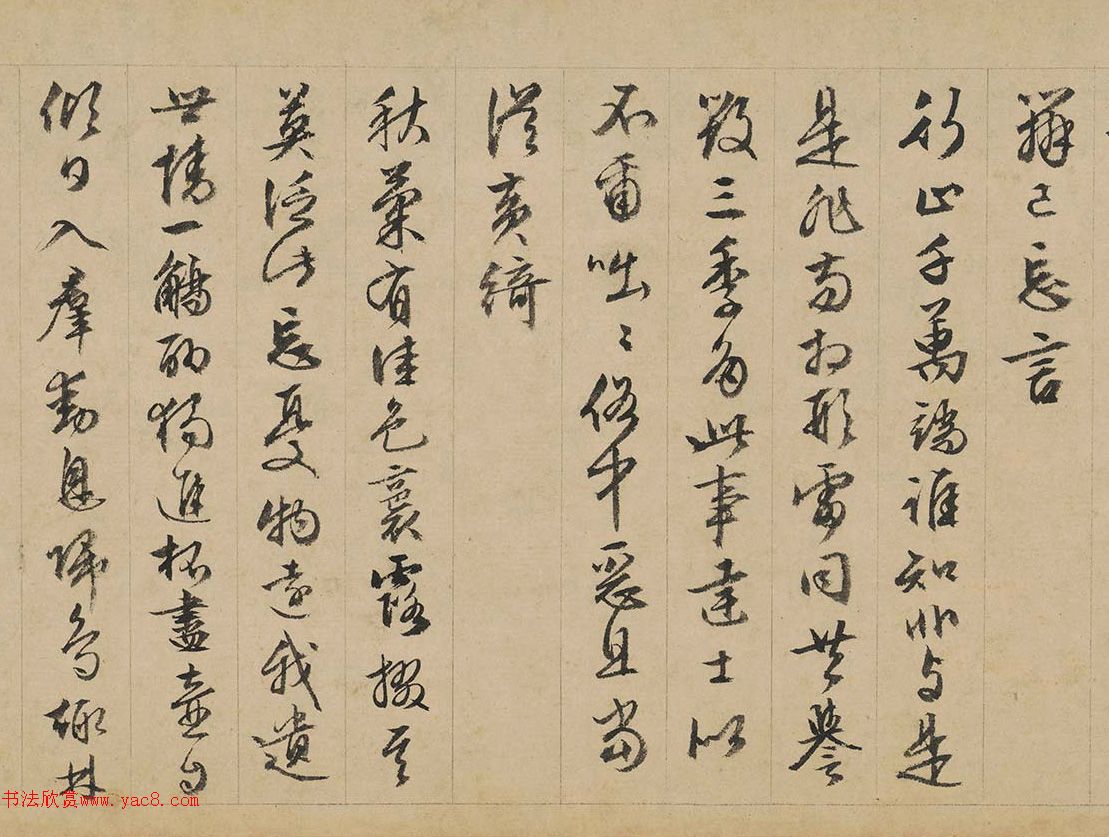 辨已忘言
行止千萬端誰知非与是
是非苟相形雷同共譽
毀三季多此事達士似
不爾咄〻俗中惡且當
從黃綺
秋菊有佳色裛露掇其
英泛此忘憂物遠我遺
世情一觴聊獨進杯盡壺自
傾日入羣動息歸鳥趨林
书法欣赏www.yac8.com